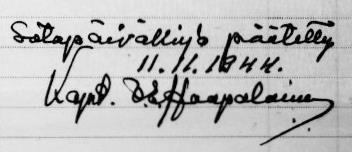 Sotapäiväkirja päätetty
11.11.1944.
Kapt. O.E. Haapalainen